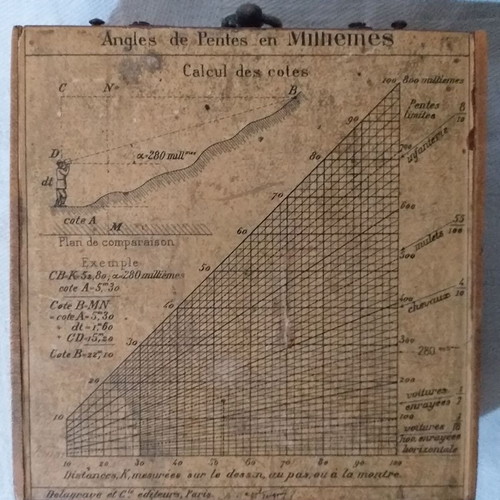 Angles de Pentes en Millièmes
Calcul des cotes
C N B
D α=280 mill
dt
cote A M
Plan de comparaison
Exemple
CB=K=52,80; α=280 millièmes
cote A=5,30
Cote B=MN
= cote A=5,30
" dt=1,60
" CD=15,20
Cote B=22,10
100
90
80
70
60
50
40
30
20
10
800 millièmes
Pentes
limites
700 infanterie 8/10
600
mulets 55/100
400 chevaux 4/10
300
280
200
voitures
enrayées
100 voitures
non enrayées
horizontale
10 20 30 40 50 60 70 80 90 100
Distances, K, mesurées sur le dessin, au pas, ou à la montre.
Delagrave et Cie éditeurs, Paris.